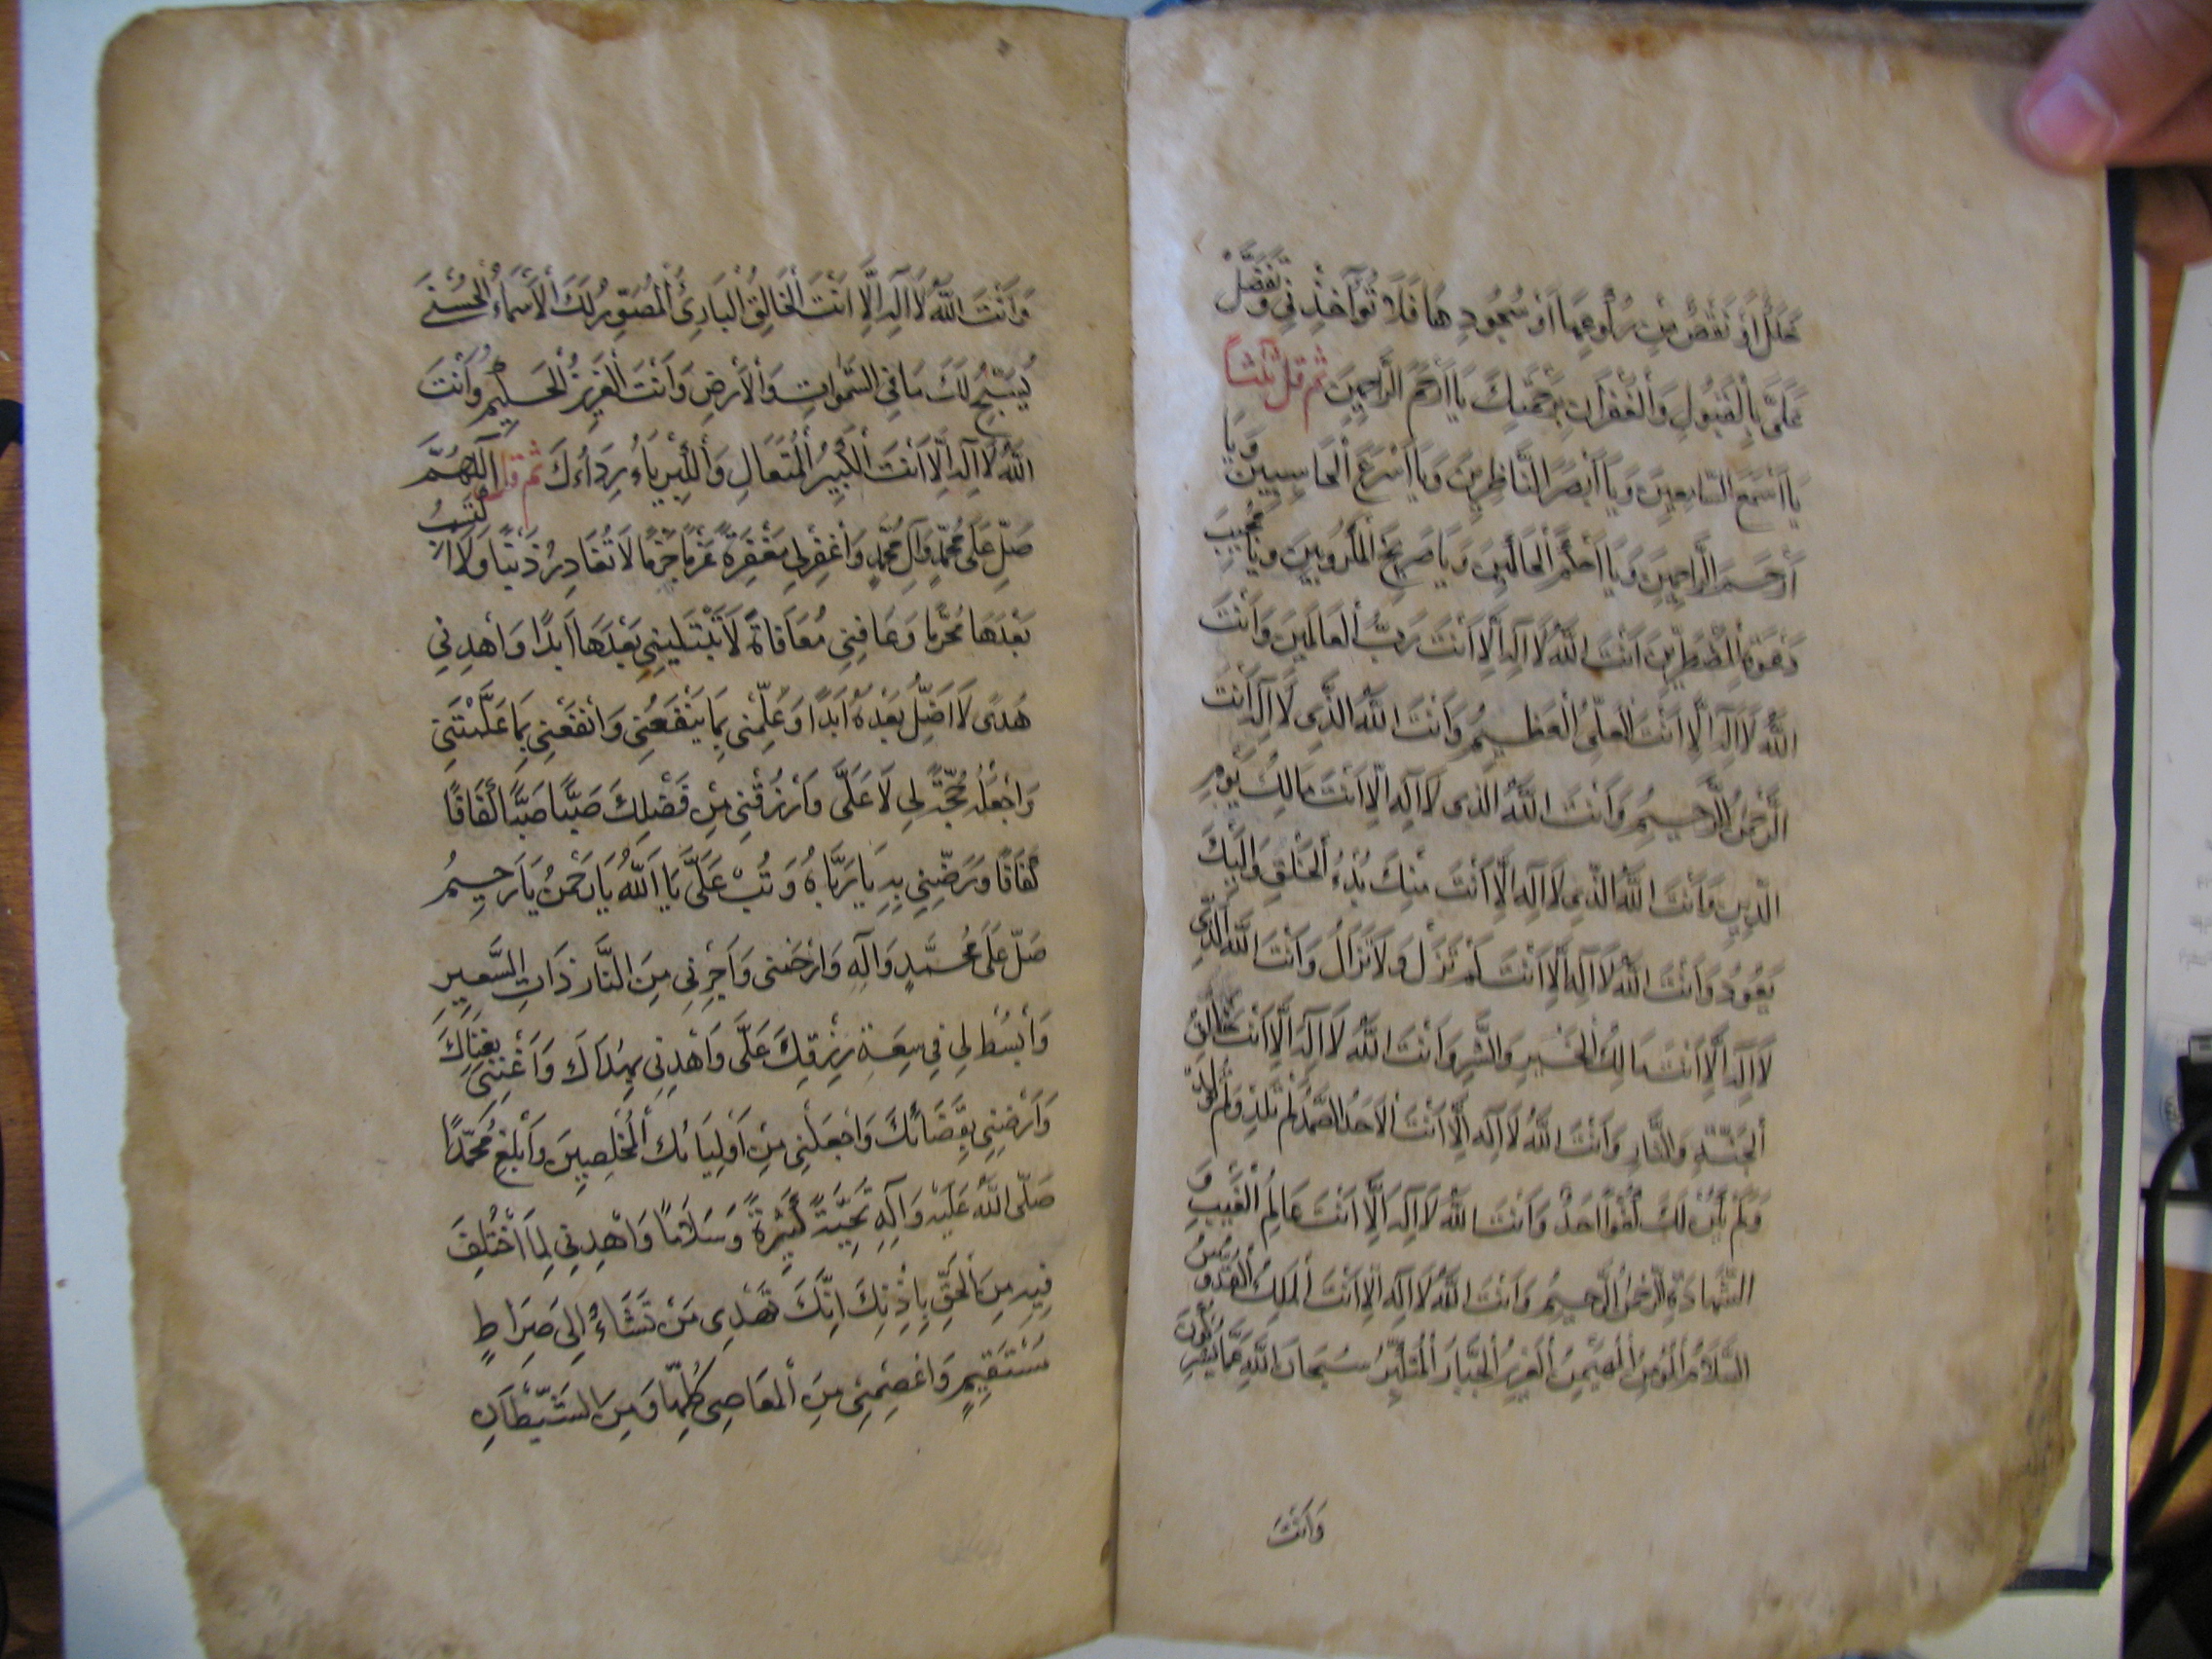 خَلَلٌ اَوْ نَقْصٌ مِنْ رُكُوعِهَا اَوْ سُجُودِهَا فَلَا تُؤَاخِذْنِي وَتَفَضَّلْ
عَلَيَّ بِالْقَبُولِ وَالْغُفْرَانِ بِرَحْمَتِكَ يَا اَرْحَمَ الرَّاحِمِينَ ثم قل ثلثا
يَا اَسْمَعَ السَّامِعِينَ وَيَا اَبْصَرَ النَّاظِرِينَ وَيَا اَسْرَعَ الْحَاسِبِينَ وَيَا
اَرْحَمَ الرَّاحِمِينَ وَيَا اَحْكَمَ الْحَاكِمِينَ وَيَا صَرِيخَ الْمَكْرُوبِينَ وَيَا مُجِيبَ
دَعْوَةِ الْمُضْطَرِّينَ اَنْتَ اللّٰهُ لَا اِلَهَ اِلَّا اَنْتَ رَبُّ الْعَالَمِينَ وَاَنْتَ
اللّٰهُ لَا اِلَهَ اِلَّا اَنْتَ الْعَلِيُّ الْعَظِيمُ وَاَنْتَ اللّٰهُ الَّذِي لَا اِلَهَ اَنْتَ
الرَّحْمٰنُ الرَّحِيمُ وَاَنْتَ اللّٰهُ الَّذِي لَا اِلَهَ اِلَّا اَنْتَ مَالِكُ يَوْمِ
الدِّينِ وَاَنْتَ اللّٰهُ الَّذِي لَا اِلَهَ اِلَّا اَنْتَ مِنْكَ بَدْءُ الْخَلْقِ وَاِلَيْكَ
يَعُودُ وَاَنْتَ اللّٰهُ لَا اِلَهَ اِلَّا اَنْتَ لَمْ تَزَلْ وَلَا تَزَالُ وَاَنْتَ اللّٰهُ الَّذِي
لَا اِلَهَ اِلَّا اَنْتَ مَالِكُ الْخَيْرِ وَالشَّرِّ وَاَنْتَ اللّٰهُ لَا اِلَهَ اِلَّا اَنْتَ خَالِقُ
الْجَنَّةِ وَالنَّارِ وَاَنْتَ اللّٰهُ لَا اِلَهَ اِلَّا اَنْتَ الْاَحَدُ الصَّمَدُ لَمْ تَلِدْ وَلَمْ تُولَدْ
وَلَمْ يَكُنْ لَكَ كُفُوًا اَحَدٌ وَاَنْتَ اللّٰهُ لَا اِلَهَ اِلَّا اَنْتَ عَالِمُ الْغَيْبِ وَ
الشَّهَادَةِ الرَّحْمٰنُ الرَّحِيمُ وَاَنْتَ اللّٰهُ لَا اِلَهَ اِلَّا اَنْتَ الْمَلِكُ الْقُدُّوسُ
السَّلَامُ الْمُؤْمِنُ الْمُهَيْمِنُ الْعَزِيزُ الْجَبَّارُ الْمُتَكَبِّرُ سُبْحَانَ اللّٰهِ عَمَّا يُشْرِكُونَ
وَاَنْتَ
وَاَنْتَ اللّٰهُ لَا اِلَهَ اِلَّا اَنْتَ الْخَالِقُ الْبَارِئُ الْمُصَوِّرُ لَكَ الْاَسْمَاءُ الْحُسْنَى
يُسَبِّحُ لَكَ مَا فِي السَّمٰوَاتِ وَالْاَرْضِ وَاَنْتَ الْعَزِيزُ الْحَكِيمُ وَاَنْتَ
اللّٰهُ لَا اِلَهَ اِلَّا اَنْتَ الْكَبِيرُ الْمُتَعَالِ وَالْكِبْرِيَاءُ رِدَاؤُكَ ثم قل اَللّٰهُمَّ
صَلِّ عَلَى مُحَمَّدٍ وَآلِ مُحَمَّدٍ وَاغْفِرْ لِي مَغْفِرَةً عَزْمًا جَزْمًا لَا تُغَادِرُ ذَنْبًا وَلَا اَكْتَسِبُ
بَعْدَهَا مُحَرَّمًا وَعَافِنِي مُعَافَاةً لَا تَبْتَلِينِي بَعْدَهَا اَبَدًا وَاهْدِنِي
هُدًى لَا اَضِلُّ بَعْدَهُ اَبَدًا وَعَلِّمْنِي مَا يَنْفَعُنِي وَانْفَعْنِي بِمَا عَلَّمْتَنِي
وَاجْعَلْهُ حُجَّةً لِي لَا عَلَيَّ وَارْزُقْنِي مِنْ فَضْلِكَ صَبًّا صَبًّا كَفَافًا
كَفَافًا وَرَضِّنِي بِهِ يَا رَبَّاهُ وَتُبْ عَلَيَّ يَا اَللّٰهُ يَا رَحْمٰنُ يَا رَحِيمُ
صَلِّ عَلَى مُحَمَّدٍ وَآلِهِ وَارْحَمْنِي وَاَجِرْنِي مِنَ النَّارِ ذَاتِ السَّعِيرِ
وَابْسُطْ لِي فِي سِعَةِ رِزْقِكَ عَلَيَّ وَاهْدِنِي بِهُدَاكَ وَاَغْنِنِي بِغِنَاكَ
وَاَرْضِنِي بِقَضَائِكَ وَاجْعَلْنِي مِنْ اَوْلِيَائِكَ الْمُخْلِصِينَ وَاَبْلِغْ مُحَمَّدًا
صَلَّى اللّٰهُ عَلَيْهِ وَآلِهِ تَحِيَّةً كَثِيرَةً وَسَلَامًا وَاهْدِنِي لِمَا اخْتُلِفَ
فِيهِ مِنَ الْحَقِّ بِاِذْنِكَ اِنَّكَ تَهْدِي مَنْ تَشَاءُ اِلَى صِرَاطٍ
مُسْتَقِيمٍ وَاعْصِمْنِي مِنَ الْمَعَاصِي كُلِّهَا وَمِنَ الشَّيْطَانِ